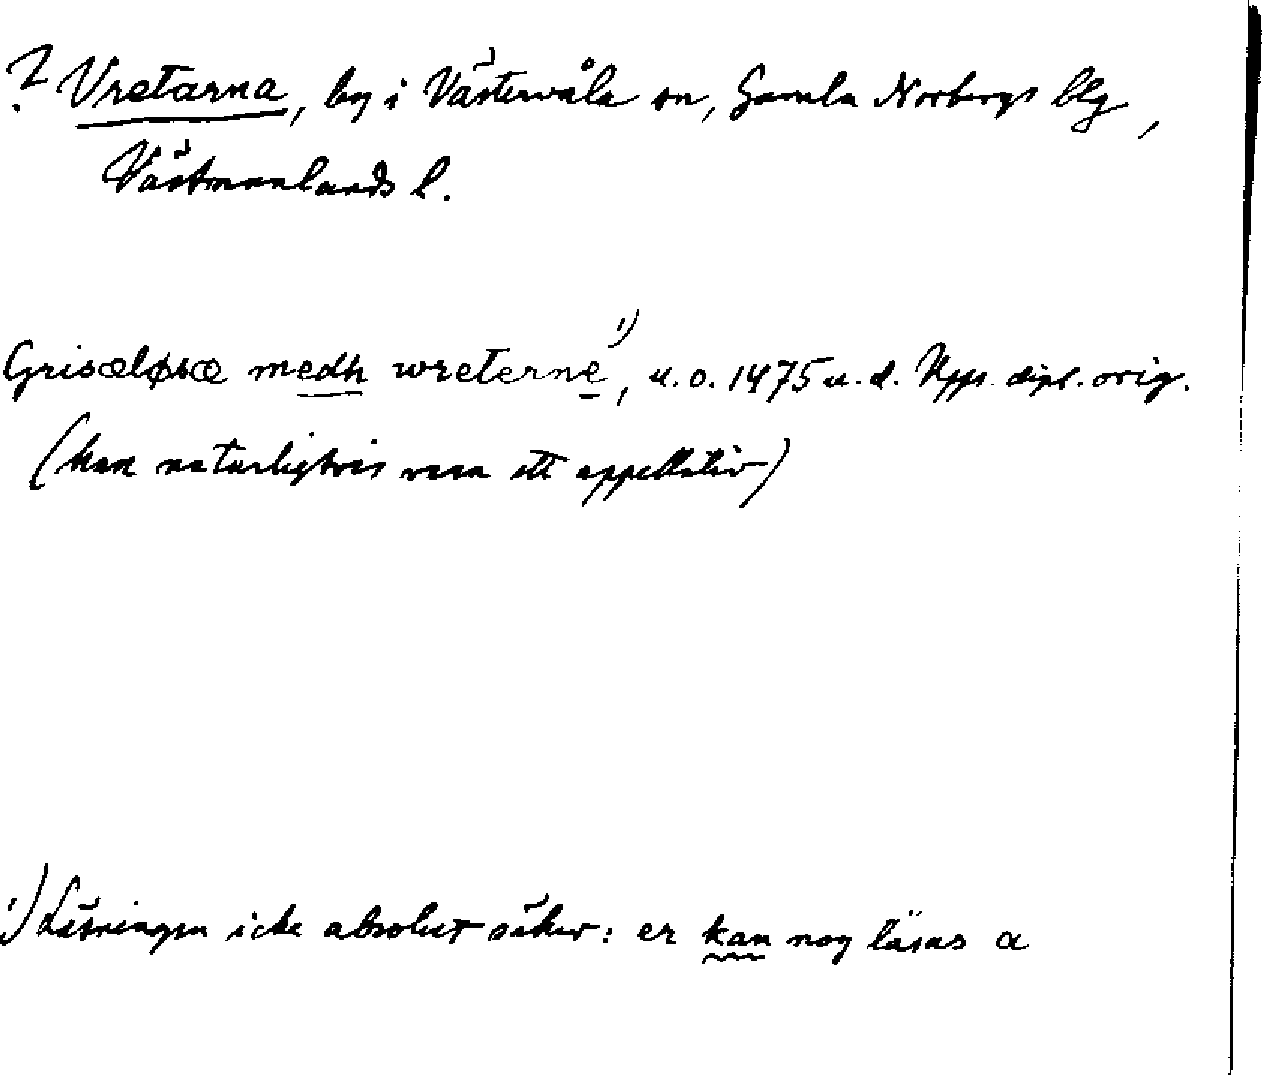 ? Vretarna, by i Västervåla sn, Gamla Norbergs blg,
Västmanlands l.
Grisæløsæ medh wreterne ¹), u.o. 1475 u.d. Upps. dipl. orig.
(kan naturligtvis vara ett appellativ)
¹) Läsningen icke absolut säker: er kan nog läsas a